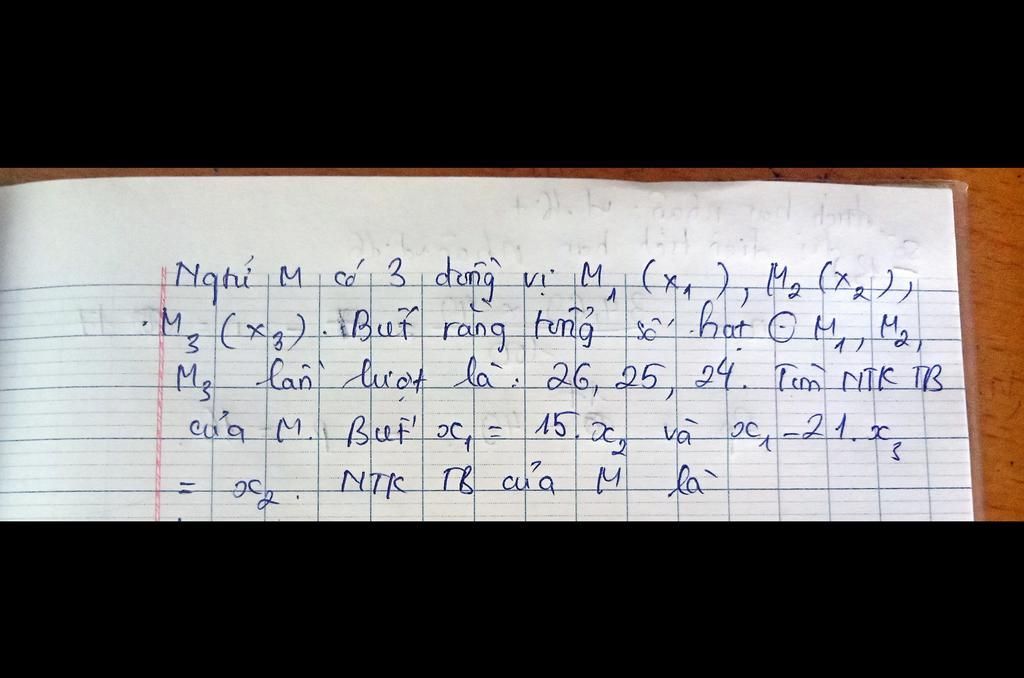 Ngtử M có 3 đồng vị M₁ (x₁), M₂ (x₂),
M₃ (x₃). Biết rằng tổng số hạt ⊖ M₁, M₂,
M₃ lần lượt là: 26, 25, 24. Tìm NTK TB
của M. Biết x₁ = 15.x₂ và x₁ - 21.x₃
= x₂. NTK TB của M là